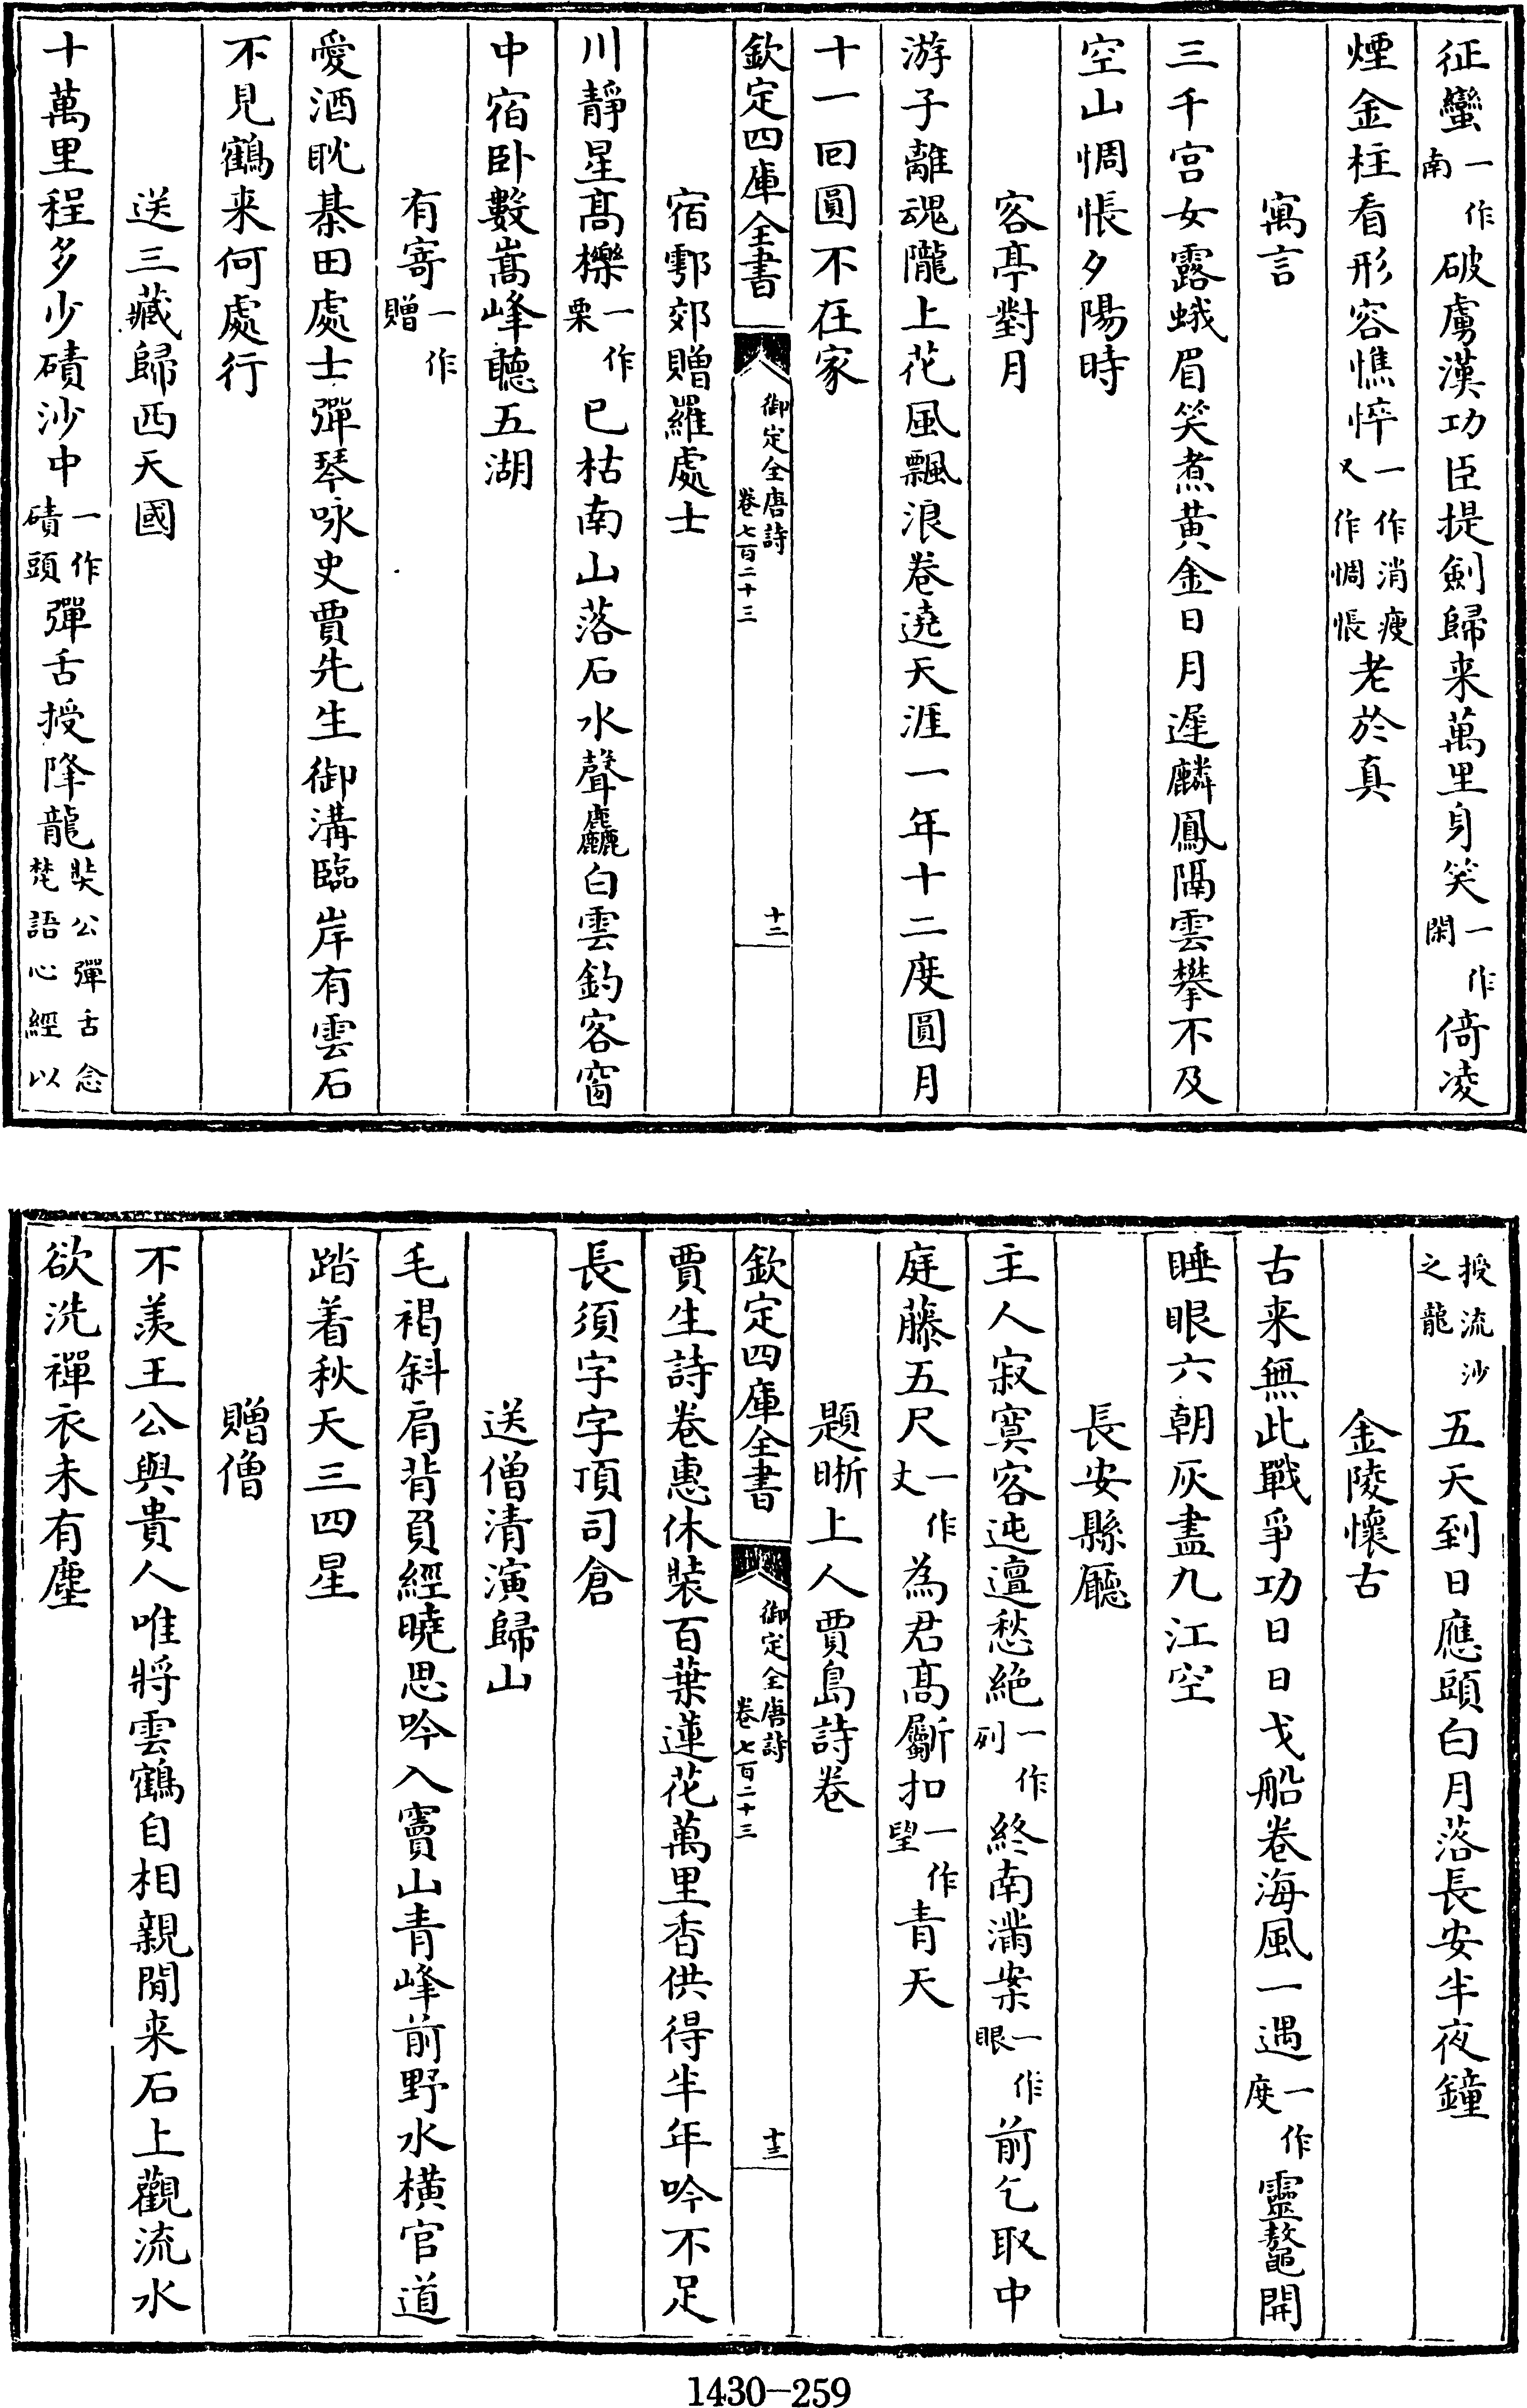 征蠻一作南破虜漢功臣提劍歸来萬里身笑一作閑倚凌
煙金柱看形容憔悴一作消瘦又作惆悵老於真
寓言
三千宫女露蛾眉笑煮黄金日月遲麟鳳隔雲攀不及
空山惆悵夕陽時
客亭對月
游子離魂隴上花風飄浪卷遶天涯一年十二度圓月
十一回圓不在家
欽定四庫全書 御定全唐詩卷七百二十三 十二
宿鄠郊贈羅處士
川靜星髙櫟一作栗已枯南山落石水聲麤白雲釣客窗
中宿卧數嵩峰聽五湖
有寄一作贈
愛酒耽棊田處士彈琴咏史賈先生御溝臨岸有雲石
不見鶴来何處行
送三藏歸西天國
十萬里程多少磧沙中一作磧頭彈舌授降龍奘公彈舌念梵語心經以
授流沙之龍五天到日應頭白月落長安半夜鐘
金陵懷古
古来無此戰爭功日日戈船卷海風一遇一作度靈鼇開
睡眼六朝灰盡九江空
長安縣廳
主人寂寞客迍邅愁絶一作列終南滿案一作眼前乞取中
庭藤五尺一作丈為君髙斸扣一作望青天
題晰上人賈島詩卷
欽定四庫全書 御定全唐詩卷七百二十三 十三
賈生詩卷惠休裝百葉蓮花萬里香供得半年吟不足
長須字字頂司倉
送僧清演歸山
毛褐斜肩背負經曉思吟入竇山青峰前野水横官道
踏着秋天三四星
贈僧
不羨王公與貴人唯將雲鶴自相親閒来石上觀流水
欲洗禪衣未有塵
1430-259